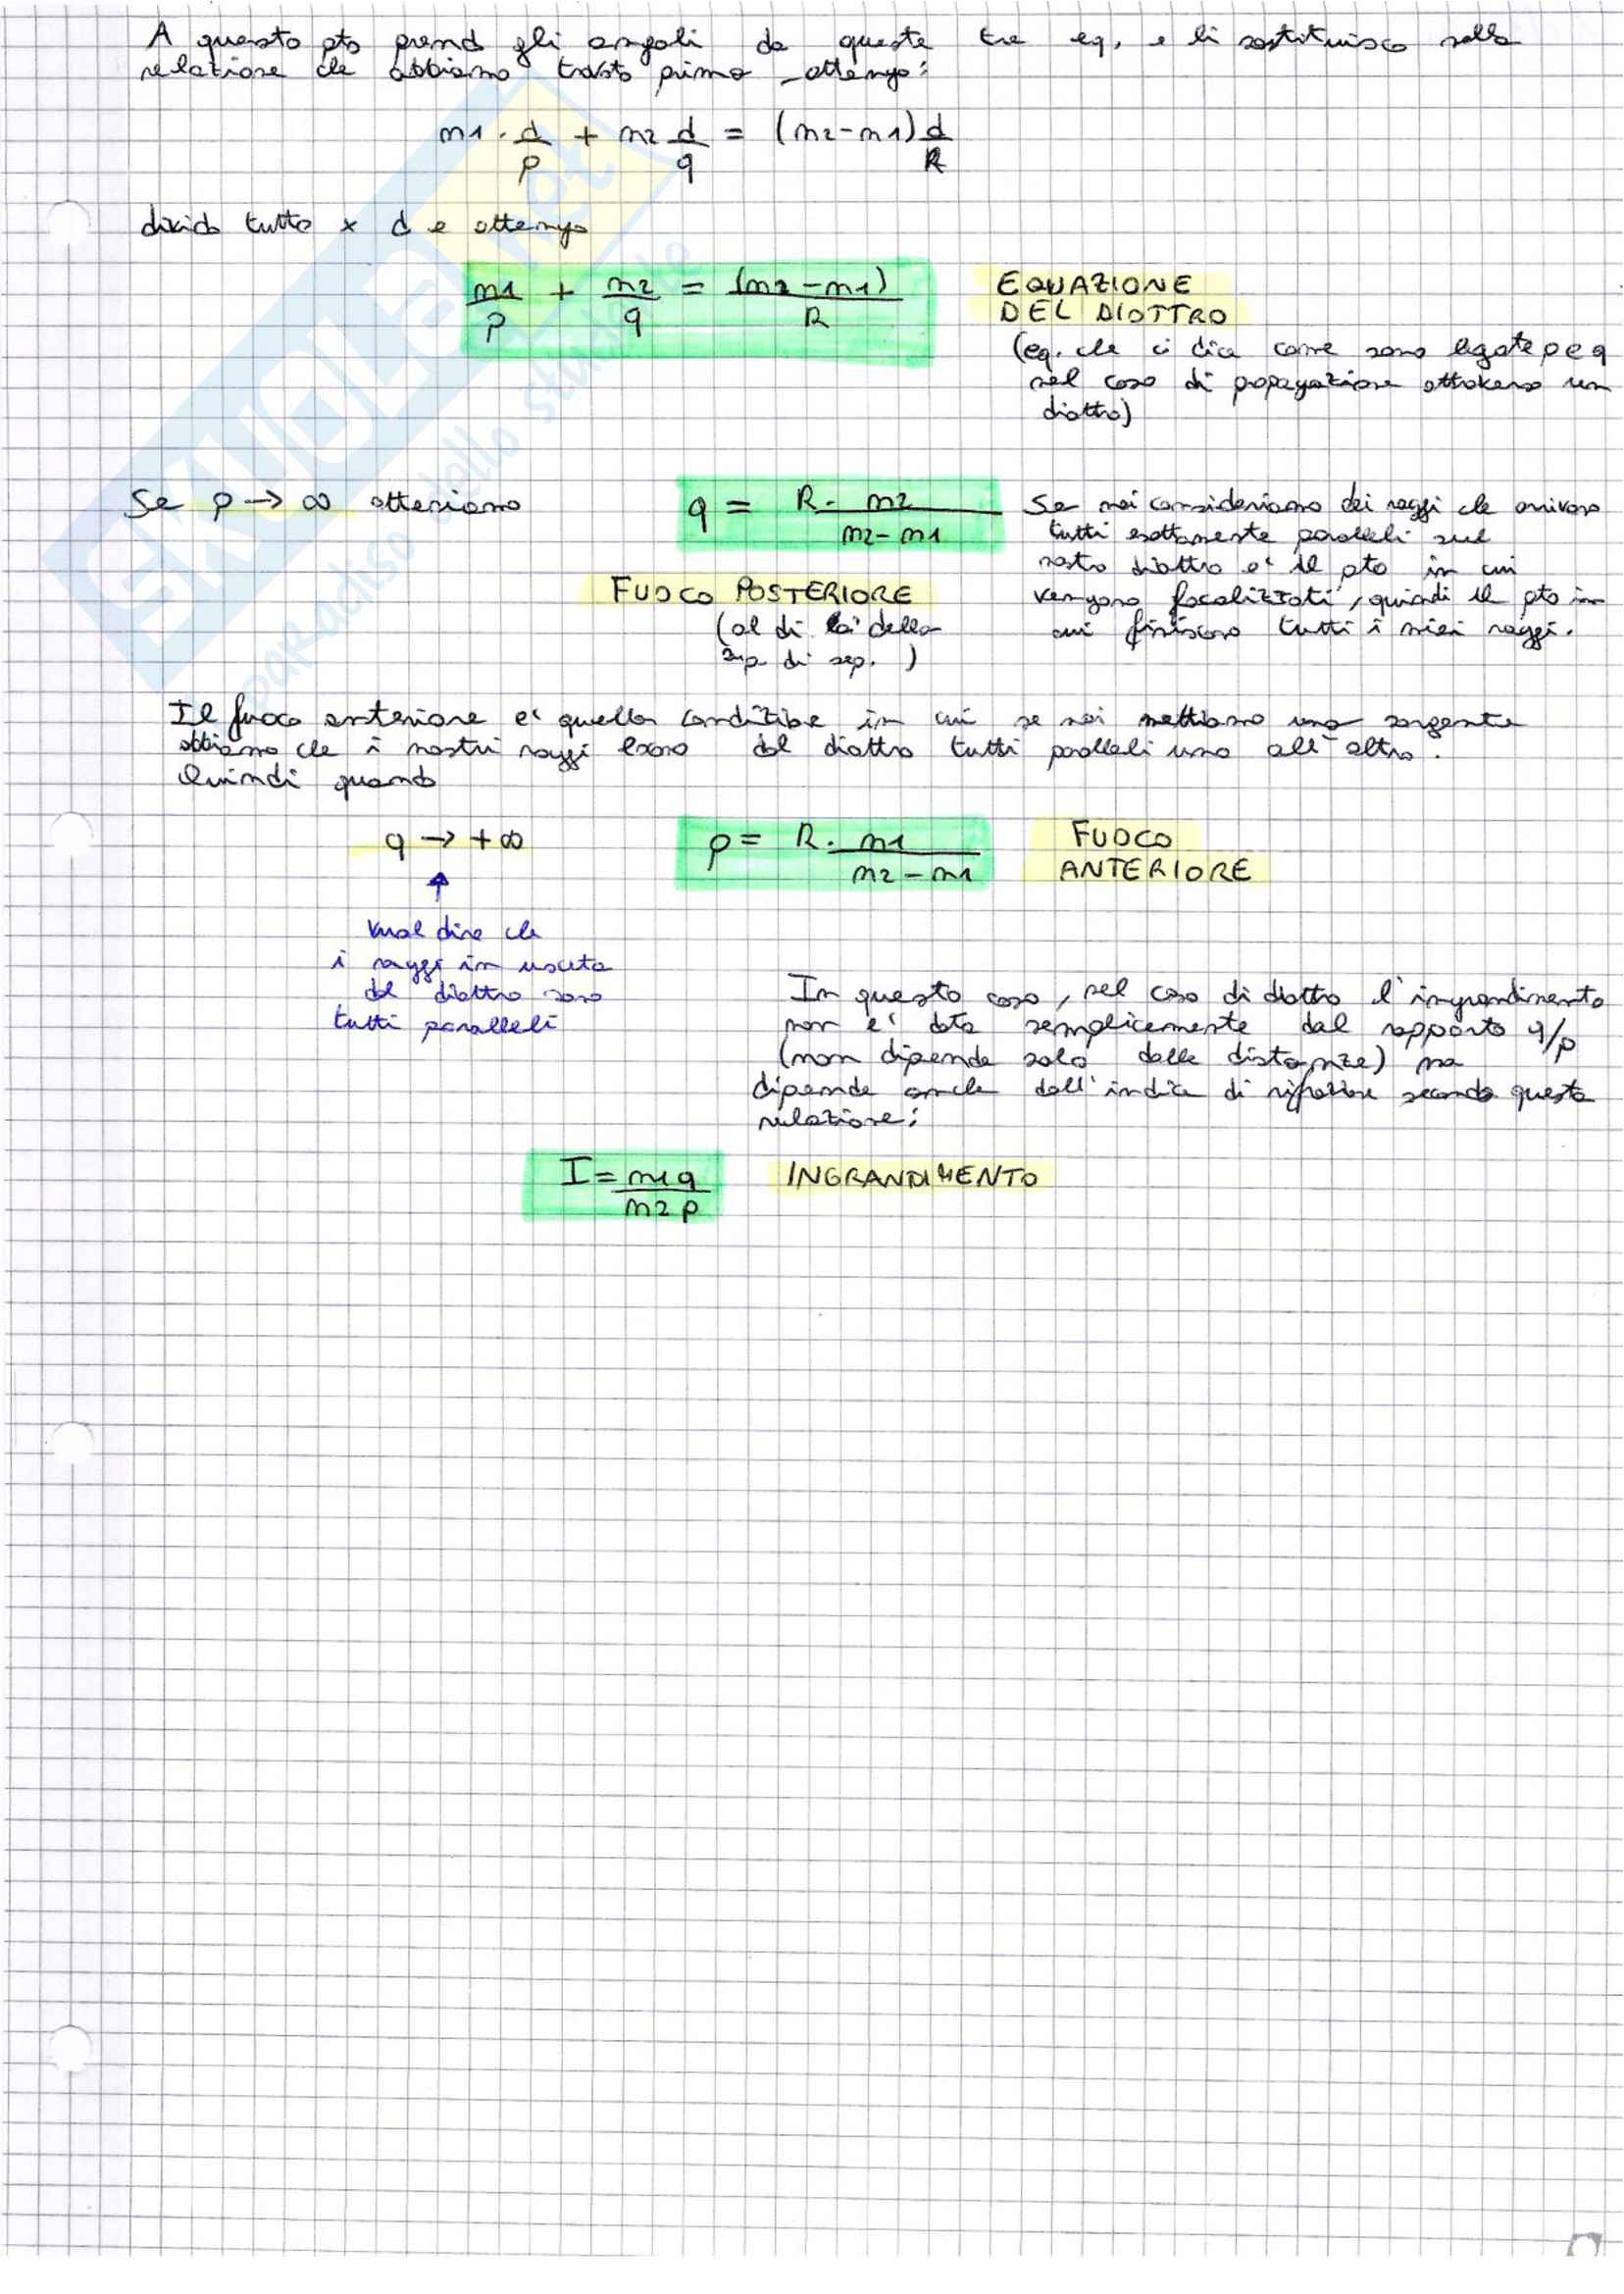 A questo pto prendo gli angoli da queste tre eq. e li sostituisco nella
relazione che abbiamo trovato prima _ottengo:
n1 · d/p + n2 d/q = (n2-n1) d/R
divido tutto x d e ottengo
n1/p + n2/q = (n2-n1)/R
EQUAZIONE
DEL DIOTTRO
(eq. che ci dice come sono legate p e q
nel caso di propagazione attraverso un
diottro)
Se p → ∞ otteniamo
q = R · n2/(n2-n1)
FUOCO POSTERIORE
(al di là della
sup. di sep. )
Se noi consideriamo dei raggi che arrivano
tutti esattamente paralleli sul
nostro diottro e' il pto in cui
vengono focalizzati, quindi il pto in
cui finiscono tutti i miei raggi.
Il fuoco anteriore e' quella condizione in cui se noi mettiamo una sorgente
abbiamo che i nostri raggi escono dal diottro tutti paralleli uno all'altro.
Quindi quando
q → +∞
p = R · n1/(n2-n1)
FUOCO
ANTERIORE
vuol dire che
i raggi in uscita
dal diottro sono
tutti paralleli
In questo caso, nel caso di diottro l'ingrandimento
non e' dato semplicemente dal rapporto q/p
(non dipende solo dalle distanze) ma
dipende anche dall'indice di rifrazione secondo questa
relazione:
I = n1q/n2p
INGRANDIMENTO
SKUOLA.net
il paradiso dello studente